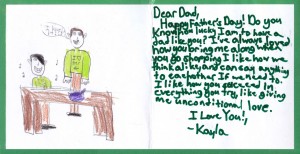 Dear Dad,
Happy Father's Day! Do you
know how lucky I am to have a
dad like you? I've always loved
how you bring me along when
you go shopping I like how we
think alike, and can say anything
to eachother if we need to.
I like how you succeed in
everything you try, like giving
me unconditional love.
I Love You!,
~Kayla